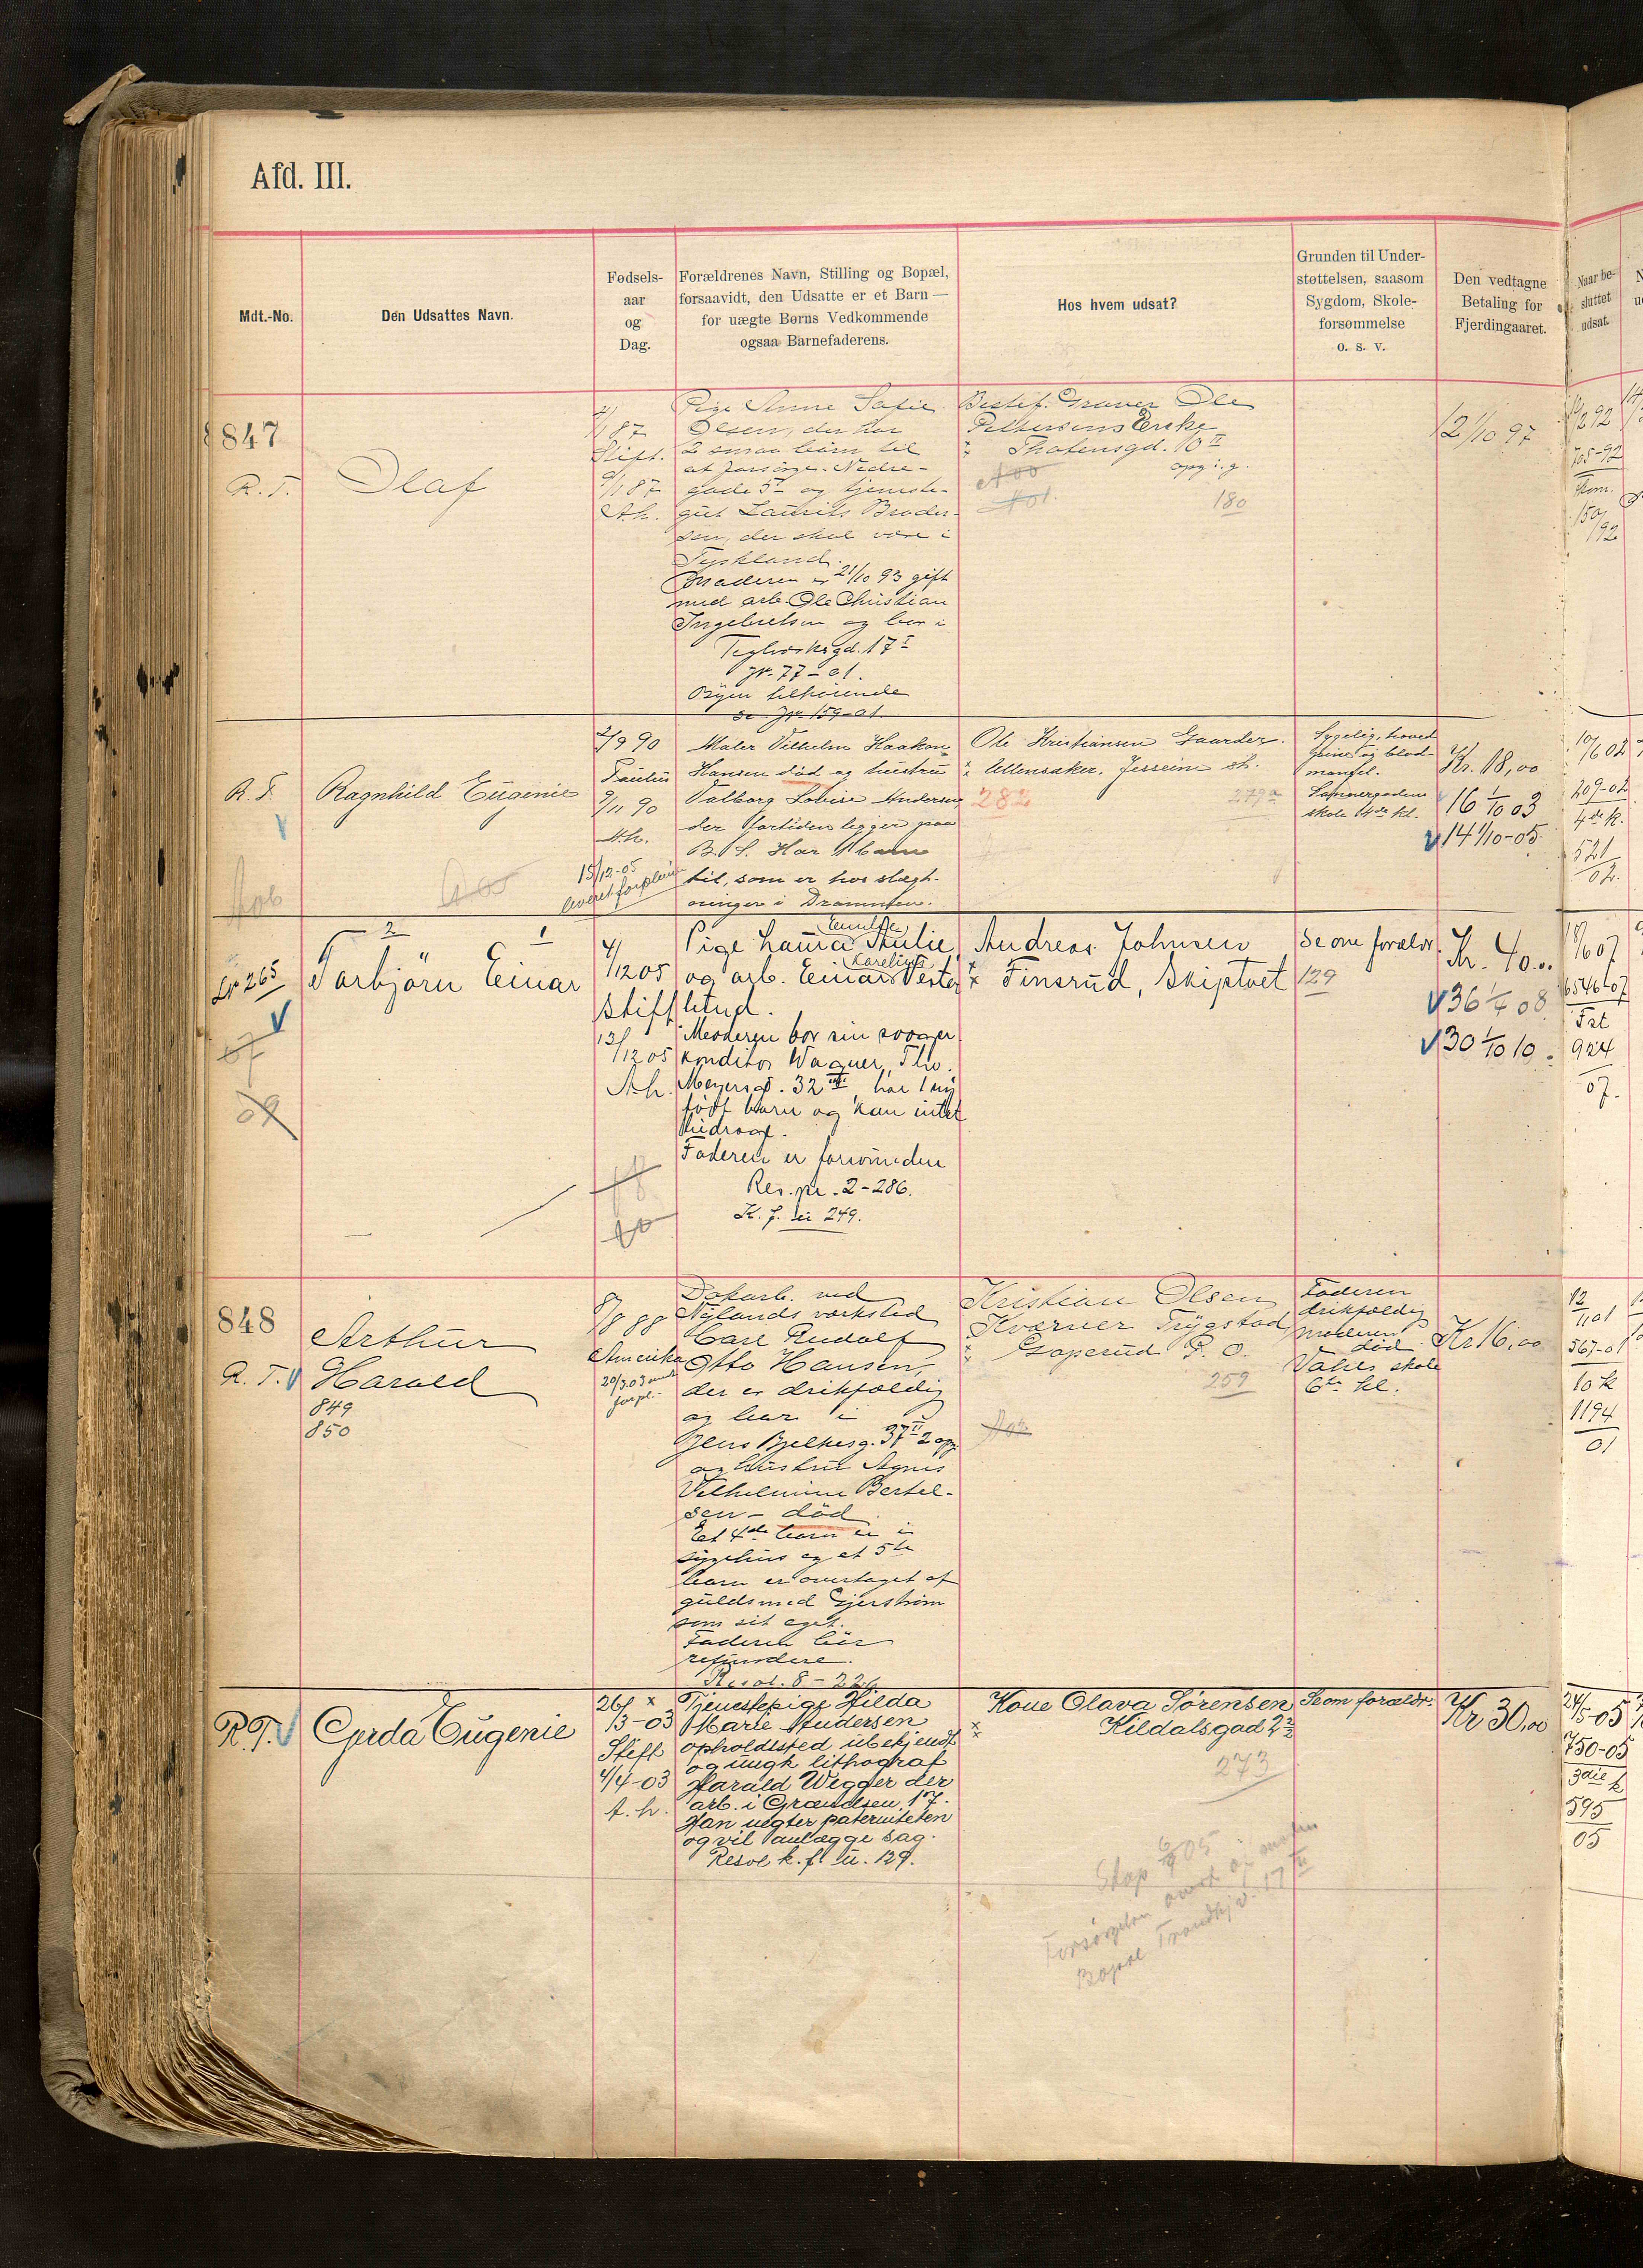 Afd. III.
Mdt.-No.
Den Udsattes Navn.
Fødsels-
aar
og
Dag.
Forældrenes Navn, Stilling og Bopæl,
forsaavidt, den Udsatte er et Barn —
for uægte Børns Vedkommende
ogsaa Barnefaderens.
Hos hvem udsat?
Grunden til Under-
støttelsen, saasom
Sygdom, Skole-
forsømmelse
o. s. v.
Den vedtagne
Betaling for
Fjerdingaaret.
Naar be-
sluttet
udsat.
847
R. T.
Olaf
87
Stift.
87
A.h.
Pige Anne Sofie
Olsen, der har
2 smaa børn til
at forsørge. Nedre-
gade 5 og tjeneste-
gut Laurits Broder-
sen, der skal være i
Tyskland.
Moderen er 21/10 93 gift
med arb. Ole Christian
Ingebretsen og bor i
Teglverksgd. 17 I
Jr. 77-01.
Byen tilhørende
se Jr. 159-01.
Bestef. Graver Ole
Pettersens Enke
Thorensgd. 10 II
opg. i. g.
180
12 1/10 97
R. T.
Ragnhild Eugenie
2/9 90
Paulus
9/11 90
A.h.
15/12-05
Maler Vilhelm Haakon
Hansen død og hustru
Valborg Lovise Andersen
der fortiden ligger paa
B. S. Har 1 barn
til, som er hos slægt-
ninger i Drammen.
Ole Kristiansen Gaarder.
Ullensaker. Jessheim st.
282
279a
Sygelig, hoved
pine og blod-
mangel.
skole 4de kl.
Kr. 18,00
16 1/10 03
14 1/10-05
10/6 02
209-02
4de k.
521
02.
2 1
Lr 265
Torbjörn Einar
4/12 05
Stift
13/12 05
A.h.
Pige Laura Emilie
og arb. Einar Karelius Vester
lund.
Moderen bor sin svoger
konditor Wagner, Thv.
Meyersgd. 32 III har 1 ny
født barn og kan intet
bidrage.
Faderen er forsvunden
Res. pr. 2-286.
K. f. lii 249.
Andreas Johnsen
Finsrud, Skiptvet
Se om foreldr.
129
Kr. 40..
36 1/4 08
30 1/10 10
6546-07
Fat
924
07.
848
R. T.
Arthur
Harald
849
850
8/8 88
Amerika
20/3.03
Dokarb. ved
Nylands værksted
Carl Rudolf
Otto Hansen,
der er drikfældig
og bor i
Jens Bjelkesg. 37 II 2 opg.
og hustru Agnes
Vilhelmine Bertel-
sen - död
Et 4de barn er i
sygehus og et 5te
barn er overtaget af
guldsmed Gjerström
som sit eget.
Faderen bör
refundere.
Resol. 8 - 226
Kristian Olsen
Kværner Trygstad
Goperud P. O.
259
Faderen
drikfældig
moderen
död
Vahls skole
6te kl.
Kr 16,00
567-01
10 k
1194
01
R.T.
Gerda Eugenie
26/
3-03
Stift
4/4-03
A. h.
Tjenestepige Hilda
Marie Andersen
opholdssted ubekjendt
og ungk. lithograf
Harald Wegger der
arb. i Grændsen 17.
Han negter paterniteten
og vil anlægge sag.
Resol k. f. ii. 129.
Kone Olava Sørensen
Kildalsgad 2
273
Se om foreldr.
Kr 30,00
24/5-05
750-05
3die k
595
05
Stop
Forsørgelsen overt. af moren
Bopæl Trondhj.v. 17